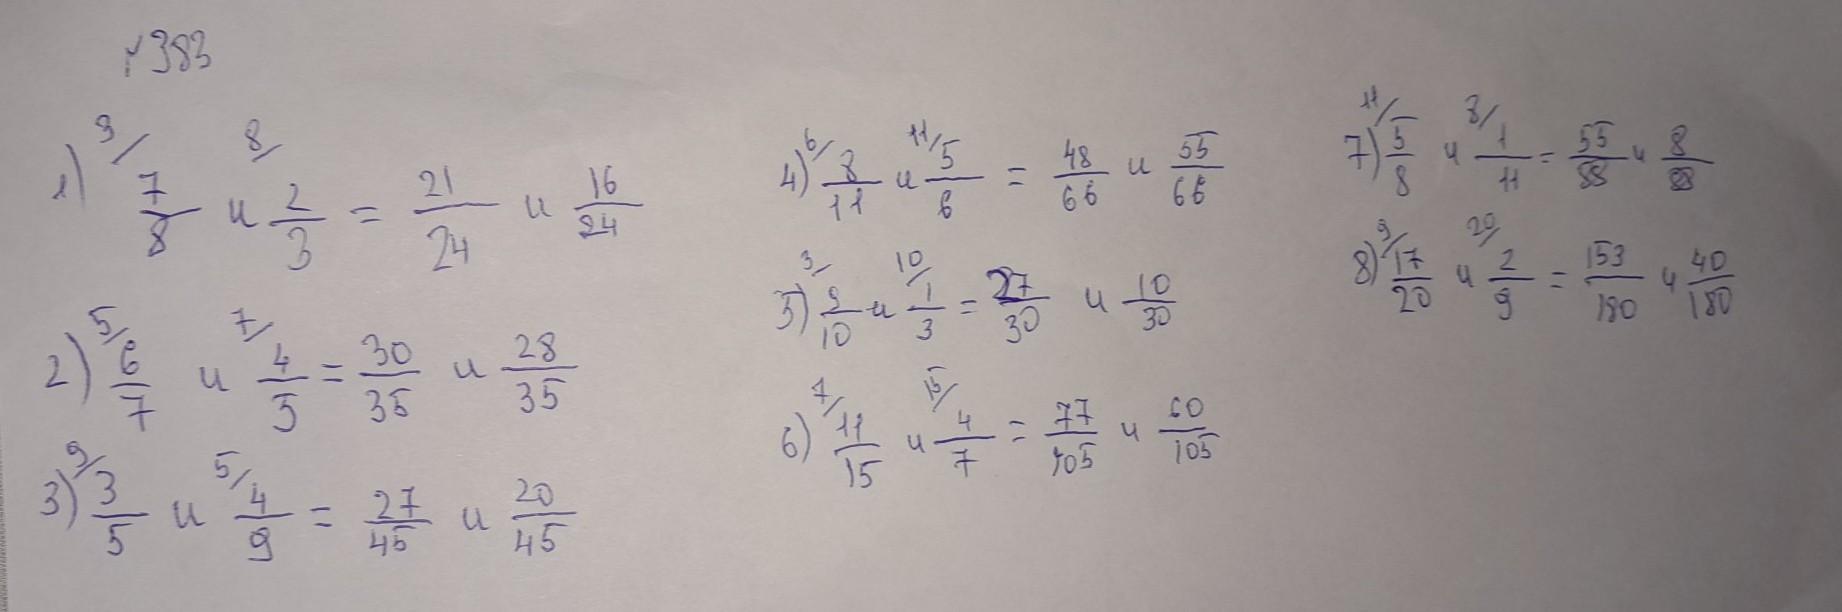 №383
1) 3/ 7/8 и 8/ 2/3 = 21/24 и 16/24
2) 5/ 6/7 и 7/ 4/5 = 30/35 и 28/35
3) 9/ 3/5 и 5/ 4/9 = 27/45 и 20/45
4) 6/ 8/11 и 11/ 5/6 = 48/66 и 55/66
5) 3/ 9/10 и 10/ 1/3 = 27/30 и 10/30
6) 7/ 11/15 и 15/ 4/7 = 77/105 и 60/105
7) 11/ 5/8 и 8/ 1/11 = 55/88 и 8/88
8) 9/ 17/20 и 20/ 2/9 = 153/180 и 40/180